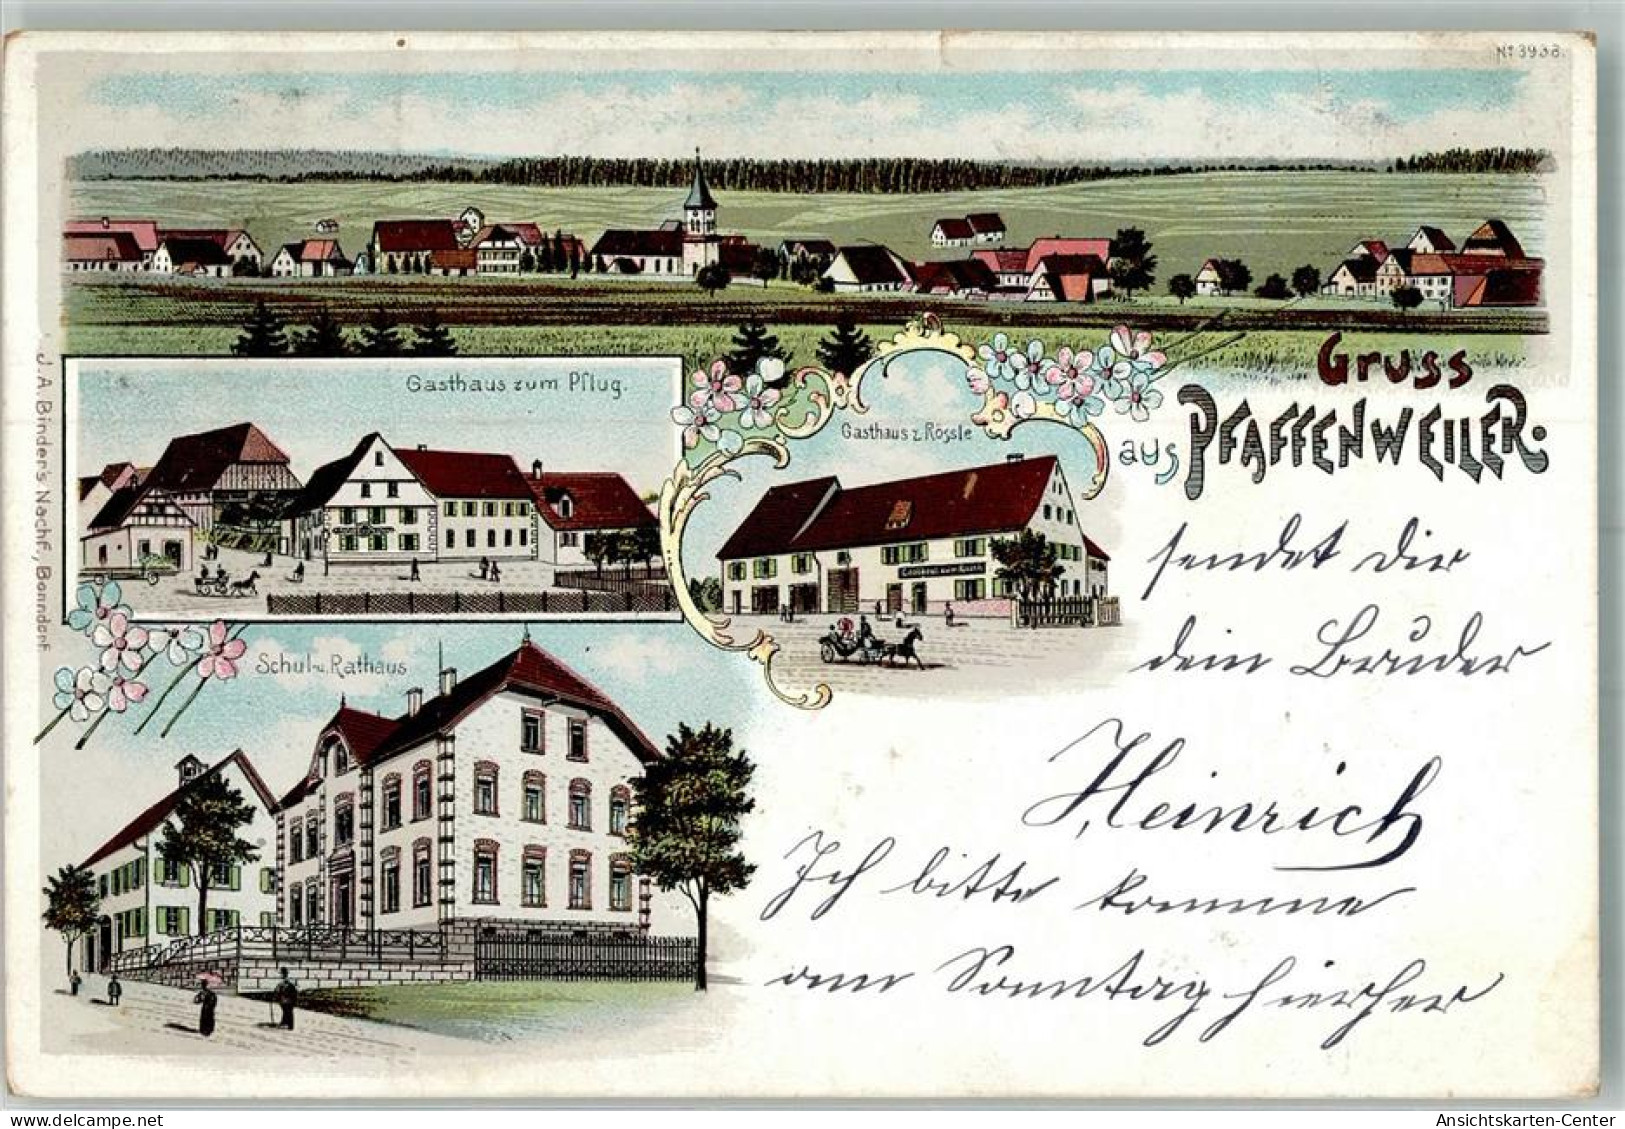 No 3938.
Gruss
aus PFAFFENWEILER.
Gasthaus zum Pflug.
Gasthaus z. Rössle
Schul- u. Rathaus
J. A. Binder's Nachf., Bonndorf
sendet Dir
dein Bruder
Heinrich
Ich bitte komme
am Sonntag hierher
Ansichtskarten-Center